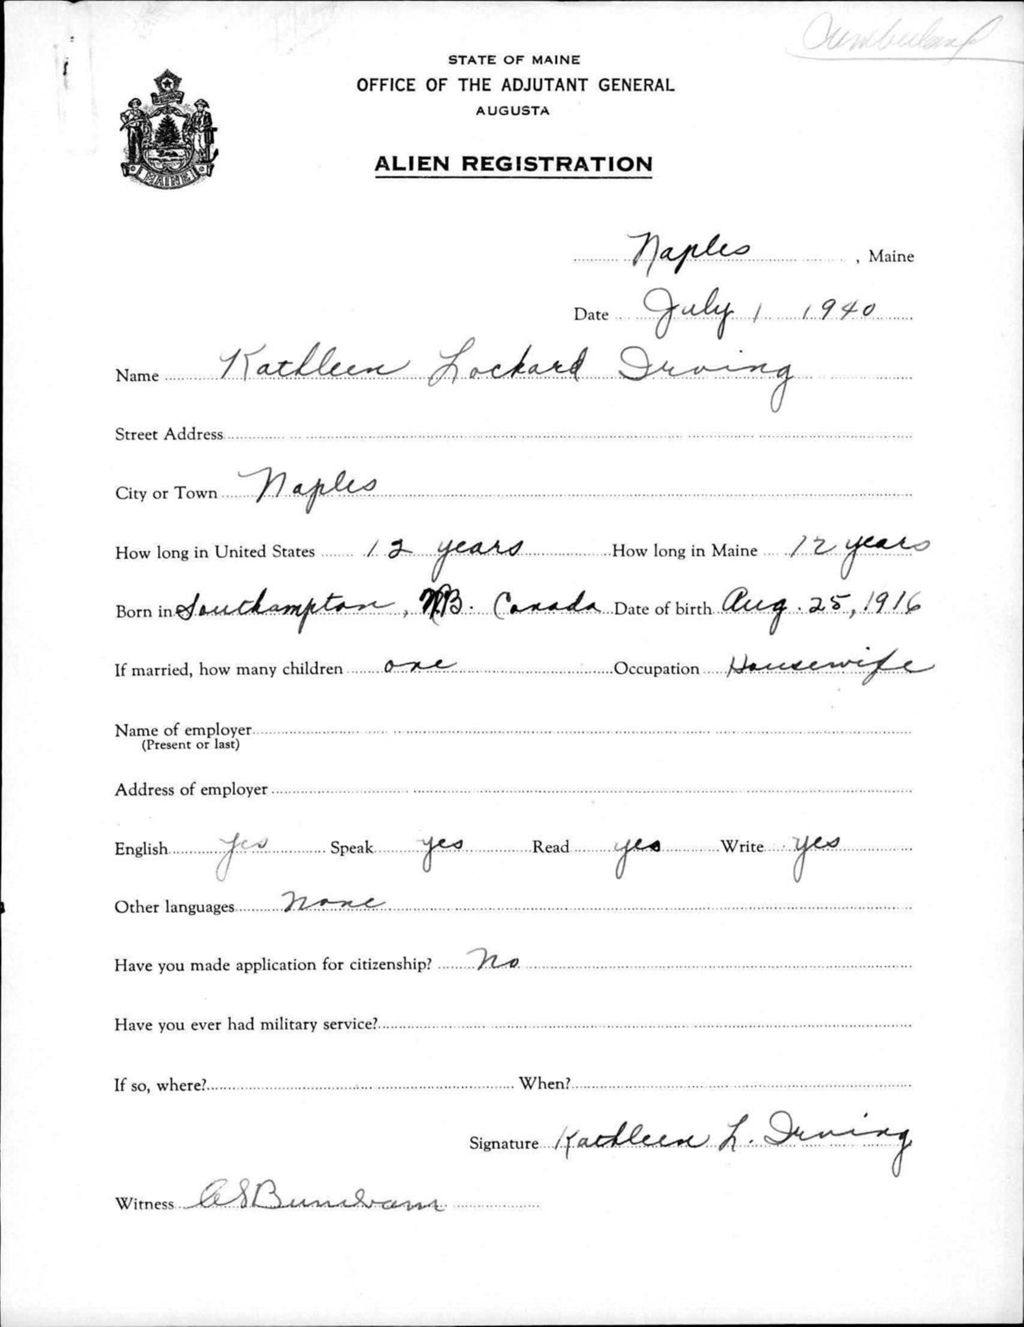 Cumberland
STATE OF MAINE
OFFICE OF THE ADJUTANT GENERAL
AUGUSTA
ALIEN REGISTRATION
MAINE
Naples, Maine
Date July 1 1940
Name Kathleen Lockard Irving
Street Address
City or Town Naples
How long in United States 12 years How long in Maine 12 years
Born in Southampton, N.B. Canada Date of birth Aug. 25, 1916
If married, how many children one Occupation Housewife
Name of employer
(Present or last)
Address of employer
English yes Speak yes Read yes Write yes
Other languages None
Have you made application for citizenship? No
Have you ever had military service?
If so, where? When?
Signature Kathleen L. Irving
Witness